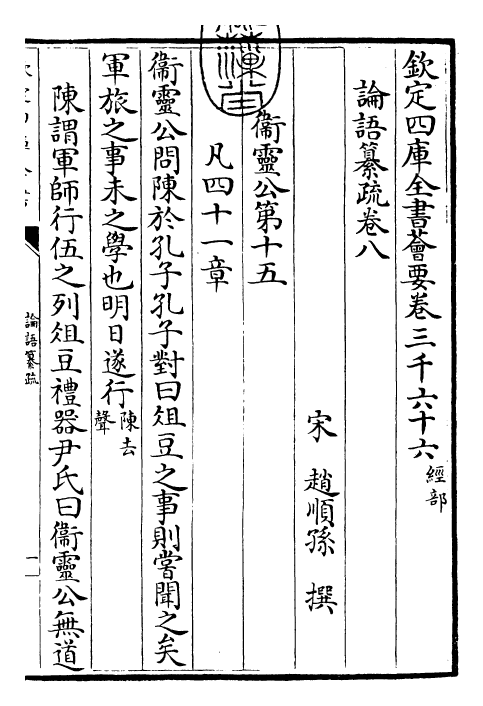 欽定四庫全書薈要卷三千六十六 經部
論語纂疏卷八
宋 趙順孫 撰
衞靈公第十五
凡四十一章
衞靈公問陳於孔子孔子對曰俎豆之事則嘗聞之矣
軍旅之事未之學也明日遂行 陳去聲
陳謂軍師行伍之列俎豆禮器尹氏曰衞靈公無道
論語纂疏
一